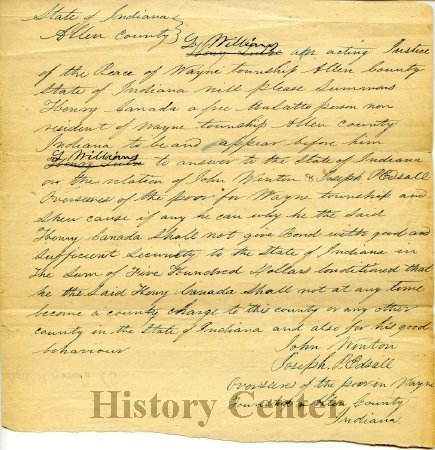 State of Indiana
Allen County
L Williams
Henry an acting Justice
of the Peace of Wayne township Allen County
State of Indiana will please Summons
Henry Canada a free Mulatto person now
resident of Wayne township Allen County
Indiana to be and appear before him
L Williams
Henry to answer to the State of Indiana
on the relation of John Winton & Joseph P Edsall
Overseers of the poor for Wayne township and
Shew cause if any he can why he the Said
Henry Canada Shall not give Bond with good and
Sufficient Security to the State of Indiana in
The Sum of Five Hundred Dollars Conditioned that
he the Said Henry Canada Shall not at any time
become a county charge to this county or any other
county in the State of Indiana and also for his good
behaviour
John Winton
Joseph P. Edsall
Overseers of the poor in Wayne
Township Allen County
Indiana
History Center